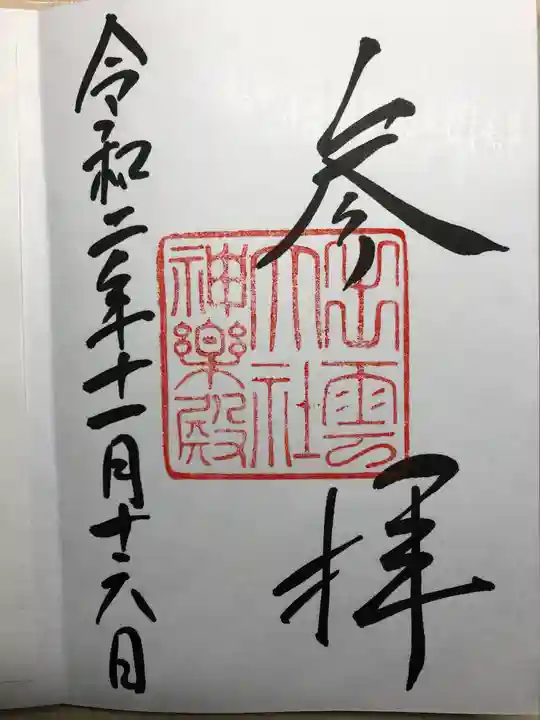 参拝
出雲
大社
神楽殿
令和二年十一月十六日